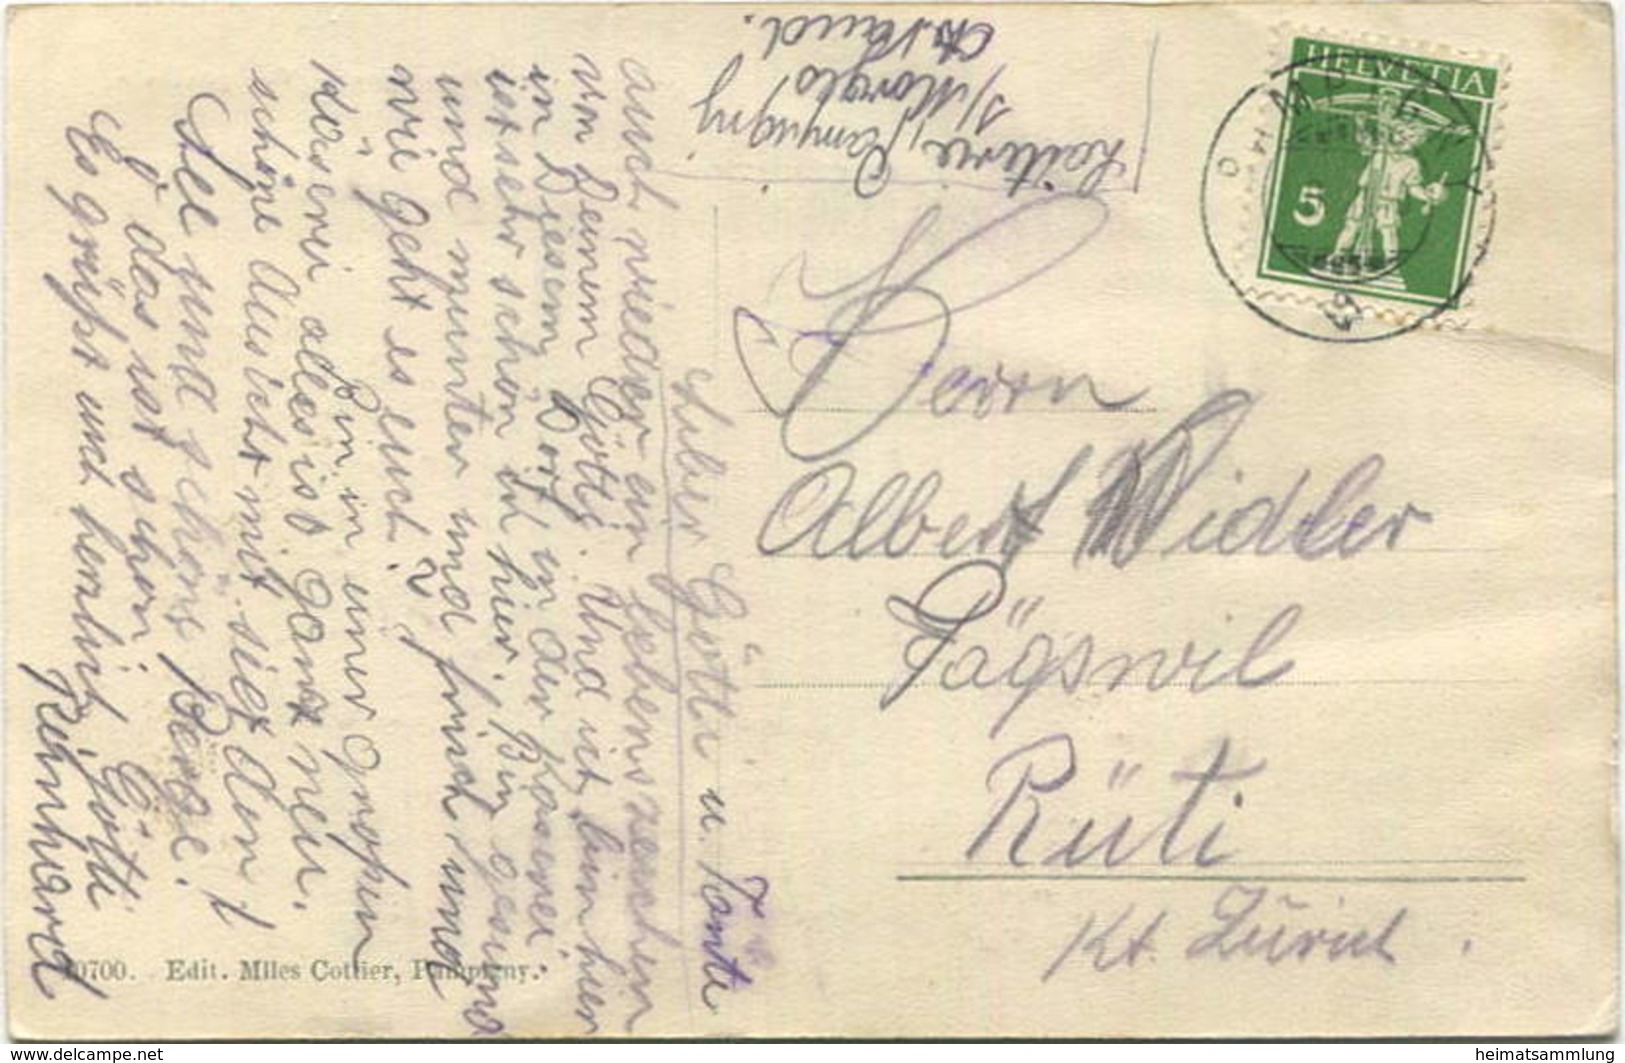 Lieber Götti u. Tante
auch wieder ein Lebenszeichen
von Deinem Götti. Und ich bin hier
in Diesem Dorf in der Käserei
ist sehr schön ich hier, Bin gesund
und munter und frisch und
wie geht es euch?
Bin in einer grossen
Käserei alles ist ganz neu.
schöne Aussicht mit sieht den
See und schöne Berge.
O das ist schön Götti
Es grüsst euch herzlich, Götti
Reinhard
Laiterie, Pampigny
s/ Morges
Ct. Vaud.
HELVETIA
5
Herrn
Albert Widler
Fägswil
Rüti
Kt. Zürich.
10700. Edit. Mlles Cottier, Pampigny.
www.delcampe.net
heimatsammlung